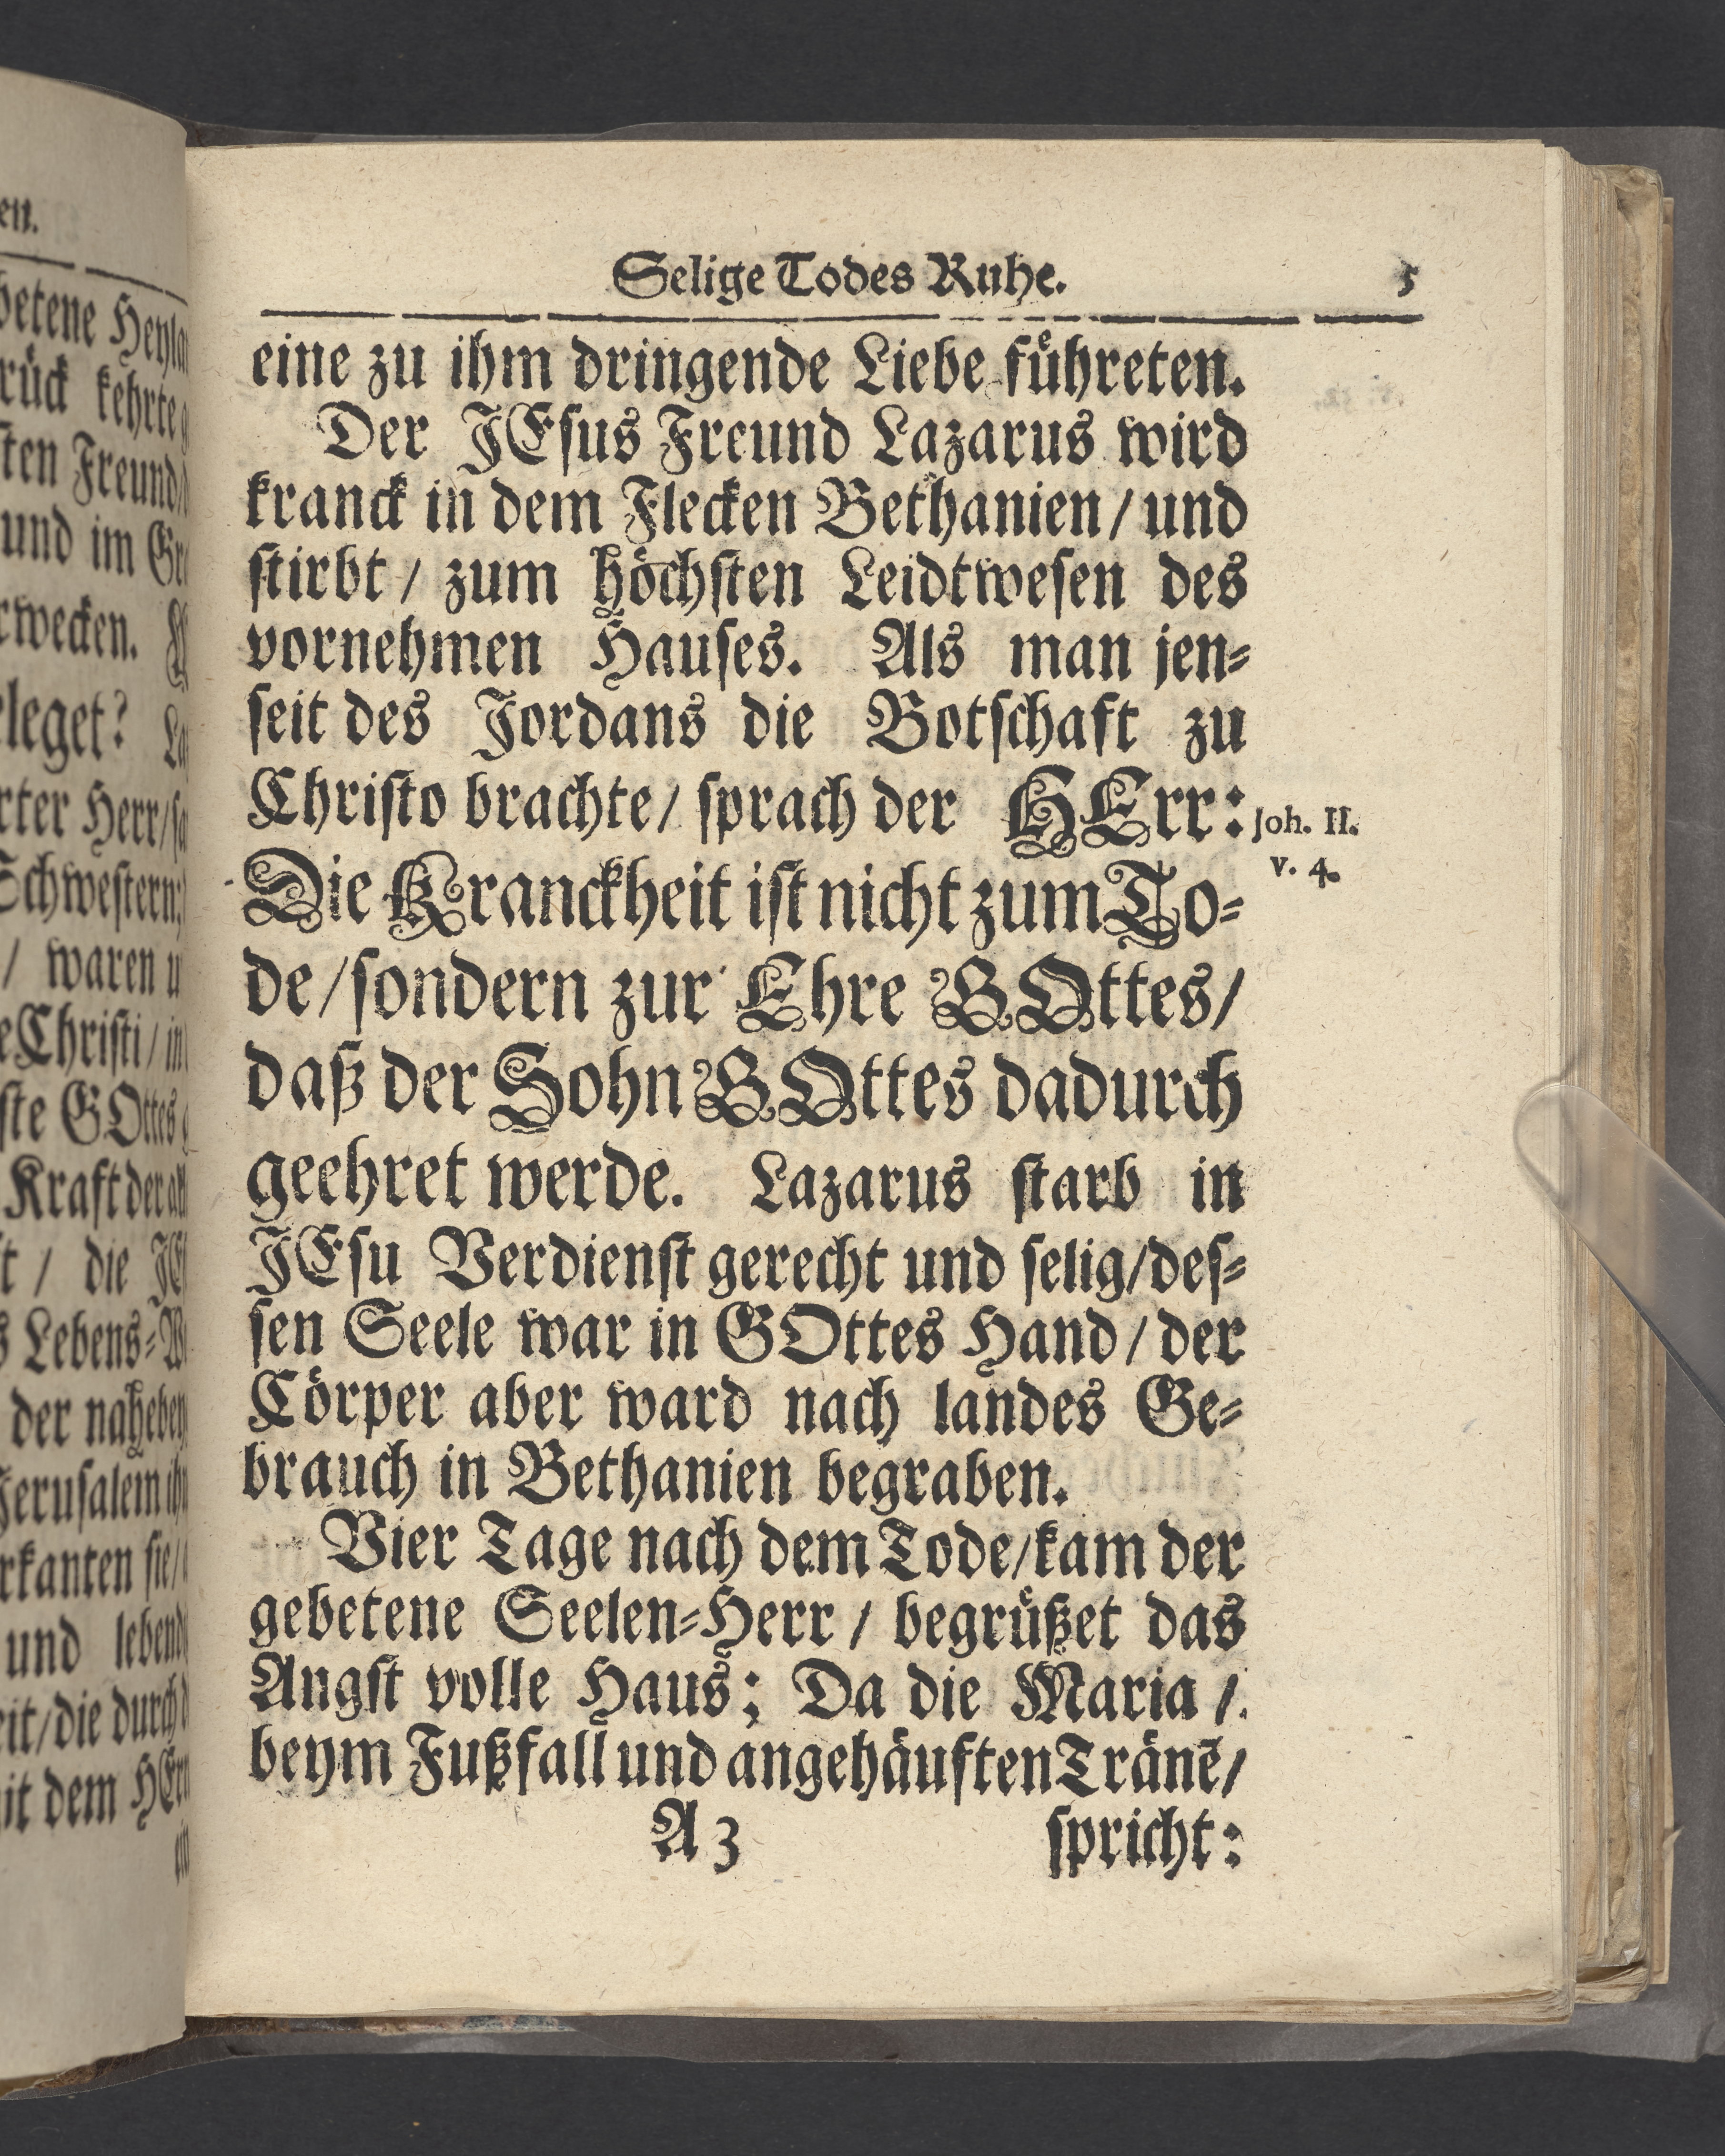 Selige Todes Ruhe. 5
eine zu ihm dringende Liebe fuͤhreten.
Der JEsus Freund Lazarus wird
kranck in dem Flecken Bethanien / und
stirbt / zum höchsten Leidtwesen des
vornehmen Hauses. Als man jen⸗
seit des Jordans die Botschaft zu
Christo brachte / sprach der HErr:
Joh. II.
v. 4.
Die Kranckheit ist nicht zum To⸗
de / sondern zur Ehre GOttes /
daß der Sohn GOttes dadurch
geehret werde. Lazarus starb in
JEsu Verdienst gerecht und selig / des⸗
sen Seele war in GOttes Hand / der
Cörper aber ward nach landes Ge⸗
brauch in Bethanien begraben.
Vier Tage nach dem Tode / kam der
gebetene Seelen⸗Herr / begruͤßet das
Angst volle Haus; Da die Maria /
beym Fußfall und angehäuften Tränē /
A 3 spricht:
en.
betene Heyla
rück kehrte
sten Freund /
und im Gr
rwecken.
leget? La
rter Herr /
Schwestern:
/ waren u
e Christi / in
ste GOttes
Kraft der
t / die JE
s Lebens⸗W
der nahebey
Jerusalem
rkanten sie /
und lebend
eit / die durch
it dem HErr